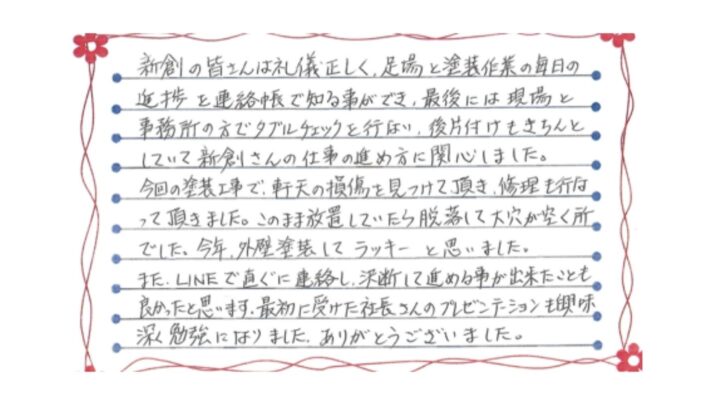 新創の皆さんは礼儀正しく、足場と塗装作業の毎日の
進捗を連絡帳で知る事ができ、最後には現場と
事務所の方でダブルチェックを行ない、後片付けもきちんと
していて新創さんの仕事の進め方に関心しました。
今回の塗装工事で、軒天の損傷を見つけて頂き、修理も行な
って頂きました。このまま放置していたら脱落して大穴が空く所
でした。今年、外壁塗装してラッキーと思いました。
また、LINEで直ぐに連絡し、決断して進める事が出来たことも
良かったと思います。最初に受けた社長さんのプレゼンテーションも興味
深く勉強になりました。ありがとうございました。